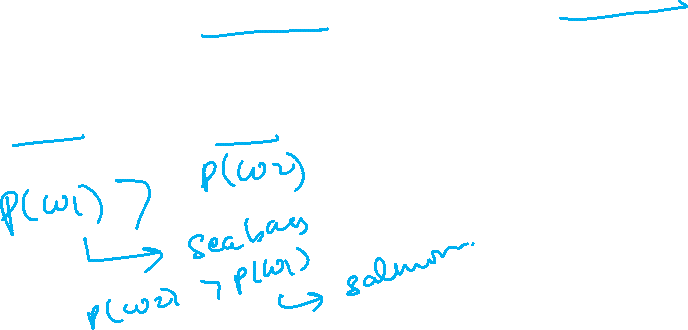 P(ω1) > P(ω2)
↳ seabass
P(ω2) > P(ω1)
↳ salmon.